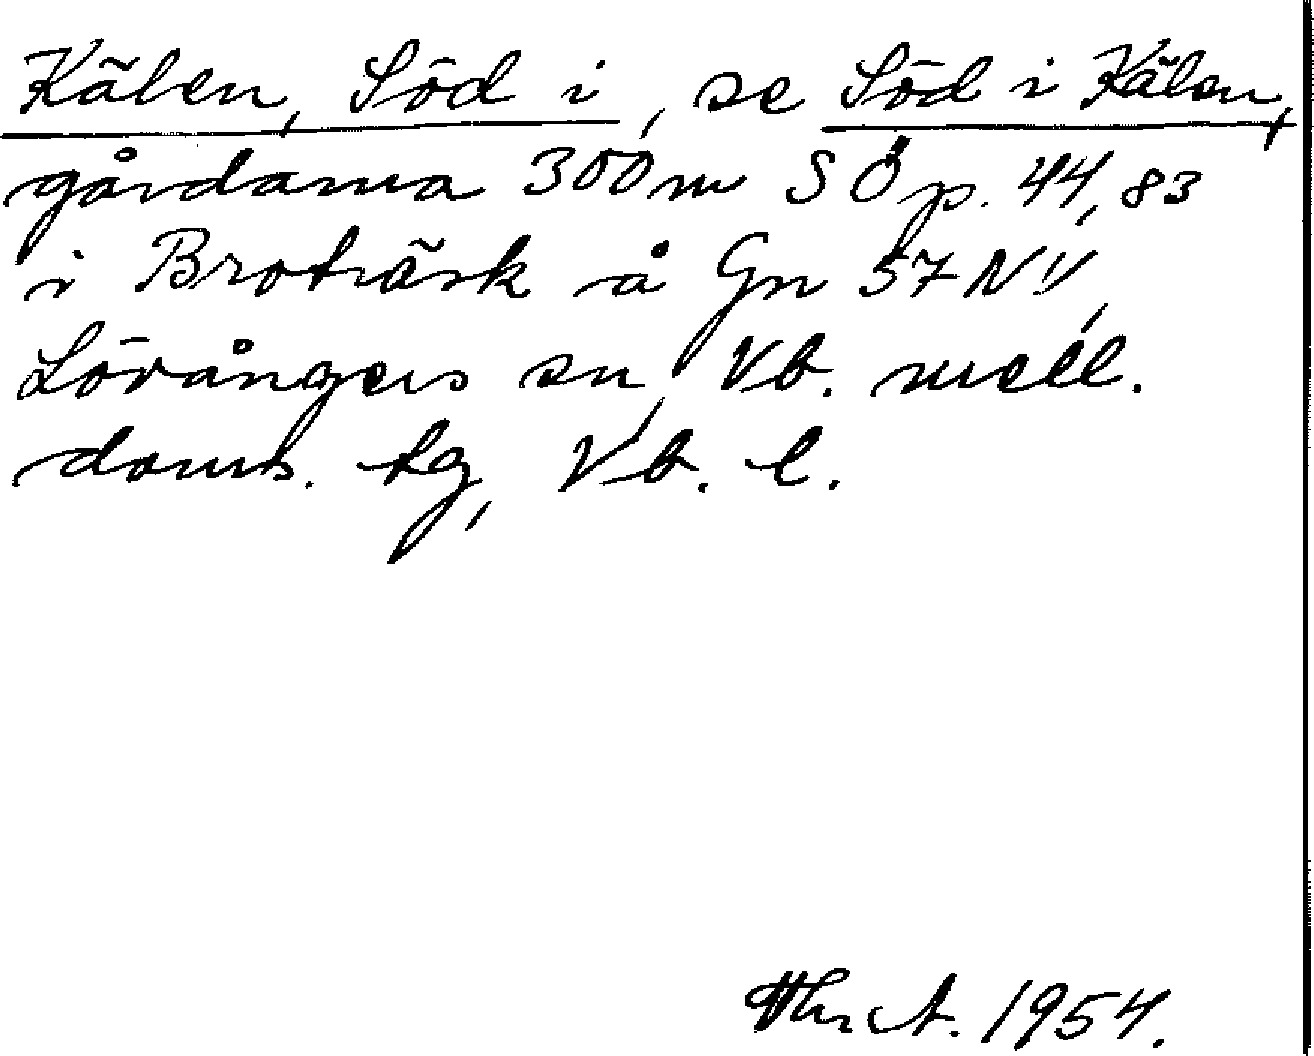 Kälen, Söd i, se Söd i Kälen,
gårdarna 300 m S Ö p. 44,83
i Broträsk å Gn 57 NV,
Lövångers sn, Vb. mell.
doms. tg, Vb. l.
1954.